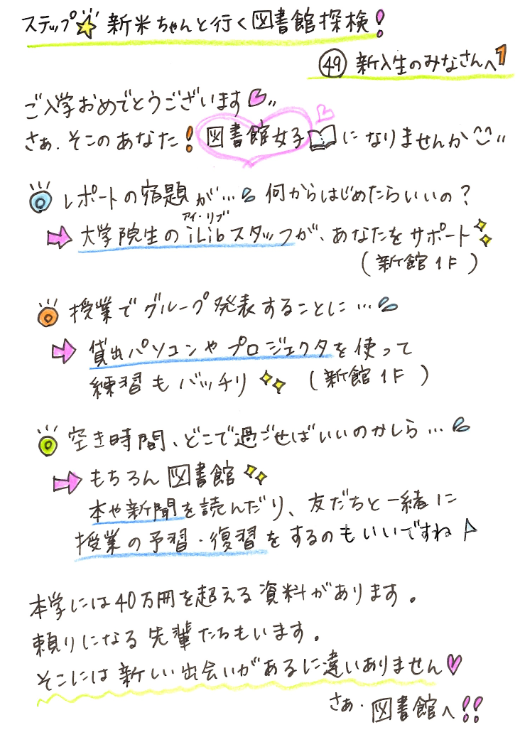 ステップ☆新米ちゃんと行く図書館探検!
㊾ 新入生のみなさんへ
ご入学おめでとうございます
さぁ、そこのあなた!図書館女子になりませんか
レポートの宿題が… 何からはじめたらいいの?
アイ・リブ
大学院生のiLibスタッフが、あなたをサポート
(新館1F)
授業でグループ発表することに…
貸出パソコンやプロジェクタを使って
練習もバッチリ (新館1F)
空き時間、どこで過ごせばいいのかしら…
もちろん図書館
本や新聞を読んだり、友だちと一緒に
授業の予習・復習をするのもいいですね♪
本学には40万冊を超える資料があります。
頼りになる先輩たちもいます。
そこには新しい出会いがあるに違いありません♡
さぁ、図書館へ!!